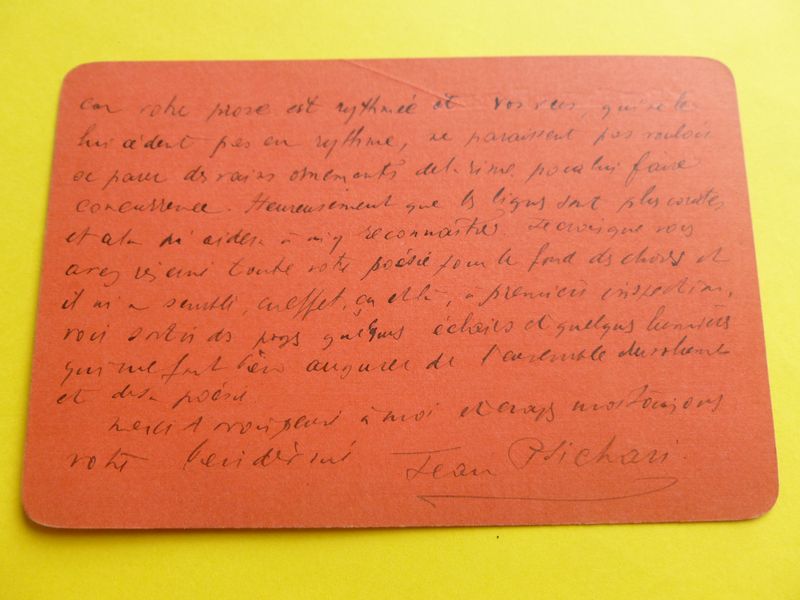 car votre prose est rythmée et vos vers, qui ne le
lui cèdent pas en rythme, ne paraissent pas vouloir
se parer des vains ornements de la rime pour lui faire
concurrence. Heureusement que les lignes sont plus courtes
et cela m'aidera à m'y reconnaître. Je crois que vous
avez réservé toute votre poésie pour le fond des choses et
il m'a semblé, en effet, çà et là, à première inspection,
voir sortir des pages quelques éclairs et quelques lumières
qui me font bien augurer de l'ensemble du volume
et de sa poésie
Merci d'avoir pensé à moi et croyez moi toujours
votre bien dévoué Jean Psichari